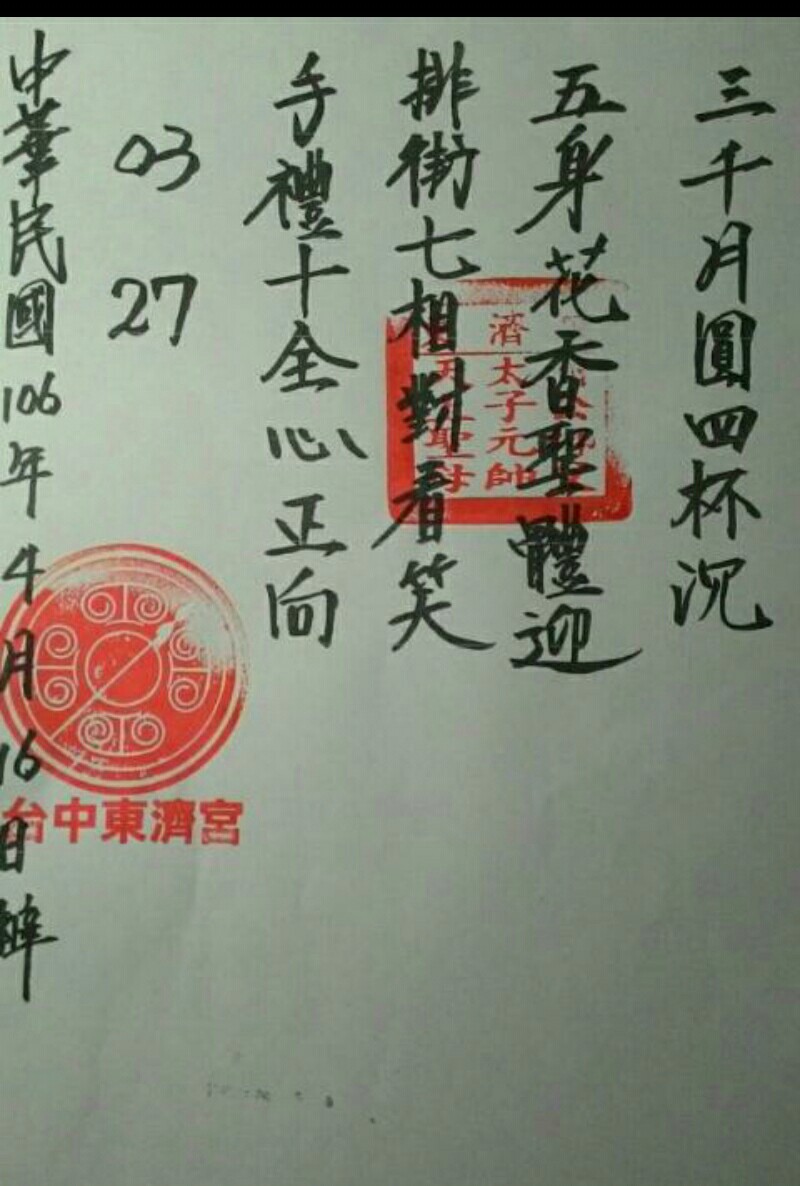 三千月圓四杯沉
五身花香聖體迎
排街七相對看笑
手禮十全心正向
03
27
中華民國106年4月16日
濟
太子元帥
聖
台中東濟宮